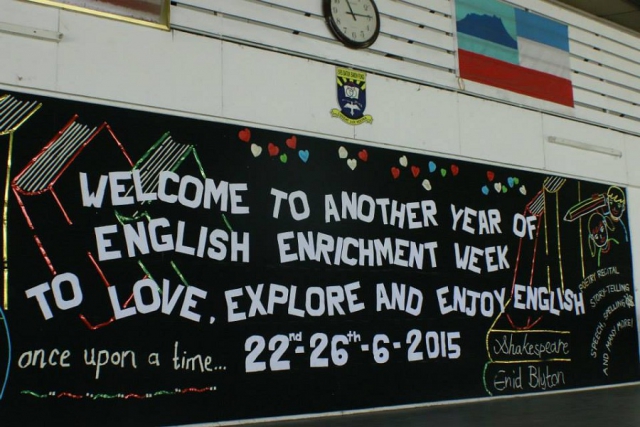 WELCOME TO ANOTHER YEAR OF
ENGLISH ENRICHMENT WEEK
TO LOVE, EXPLORE AND ENJOY ENGLISH
22nd-26th-6-2015
once upon a time...
Shakespeare
Enid Blyton
POETRY RECITAL
STORY TELLING
SPEECH,
AND MANY MORE!